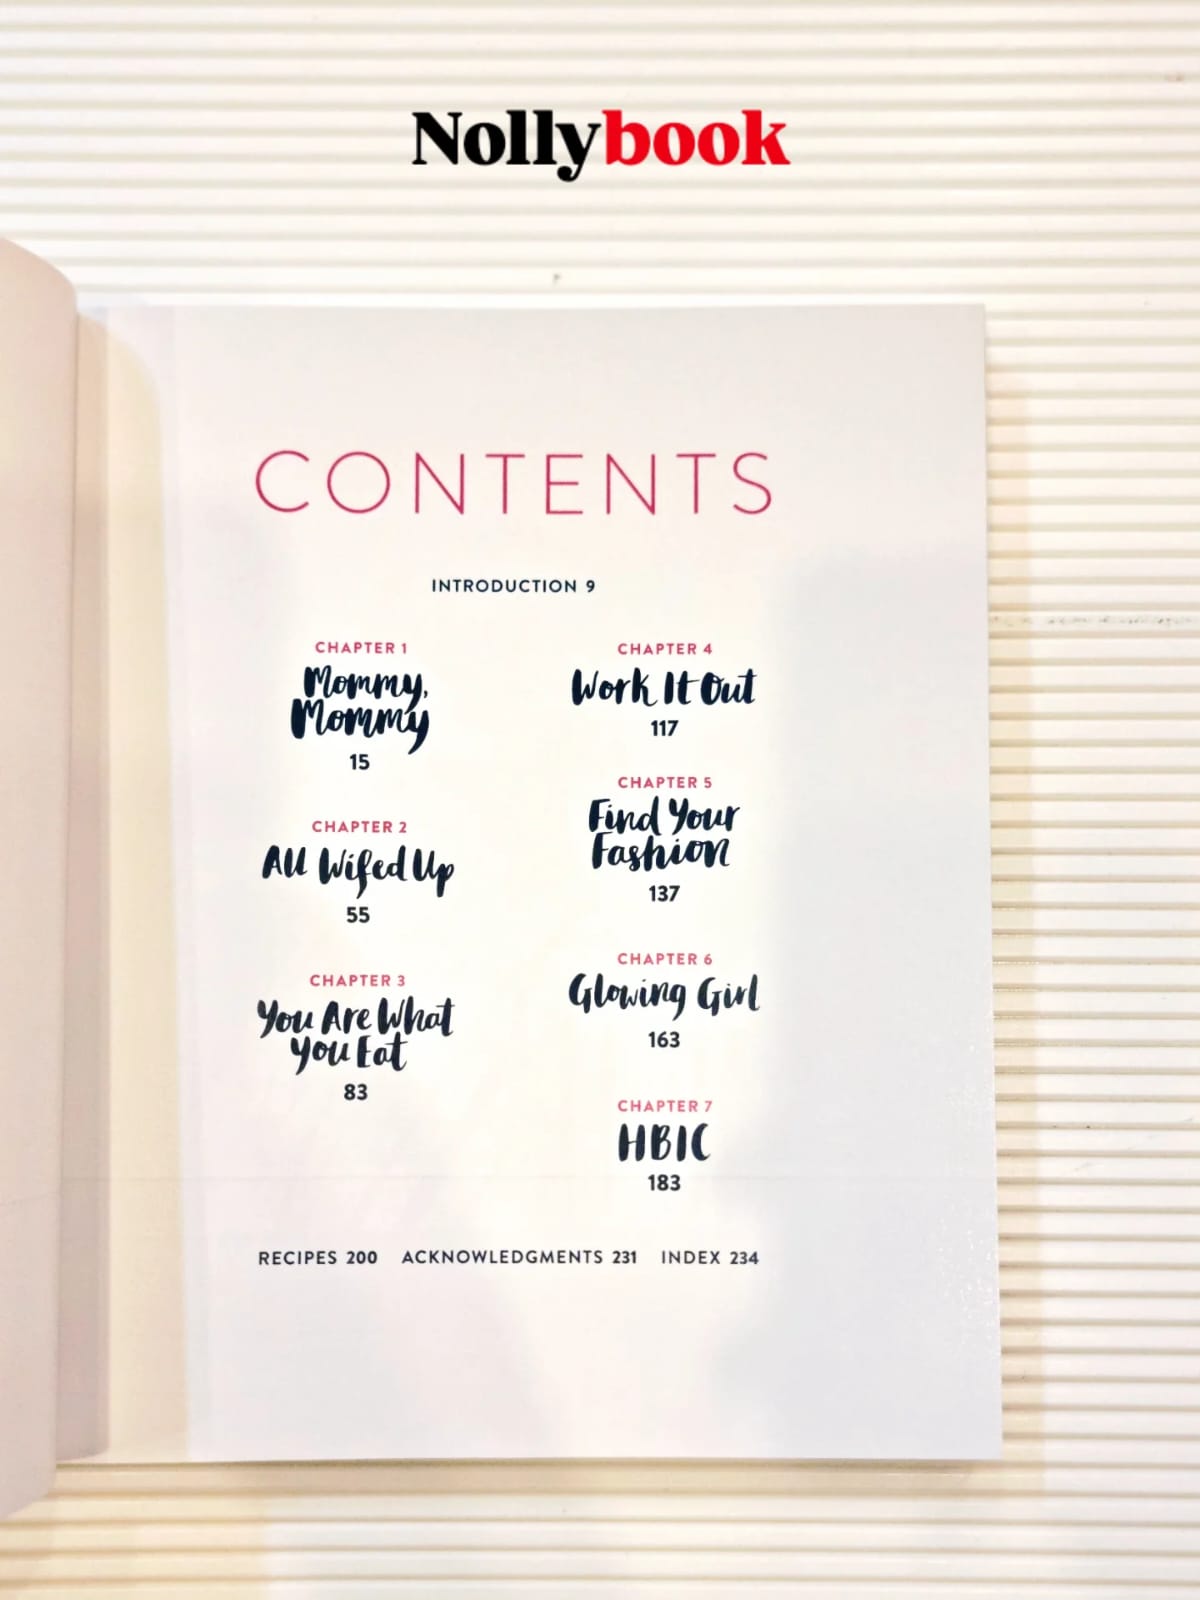 Nollybook
CONTENTS
INTRODUCTION 9
CHAPTER 1
Mommy,
Mommy
15
CHAPTER 2
All Wifed Up
55
CHAPTER 3
You Are What
You Eat
83
CHAPTER 4
Work It Out
117
CHAPTER 5
Find Your
Fashion
137
CHAPTER 6
Glowing Girl
163
CHAPTER 7
HBIC
183
RECIPES 200 ACKNOWLEDGMENTS 231 INDEX 234